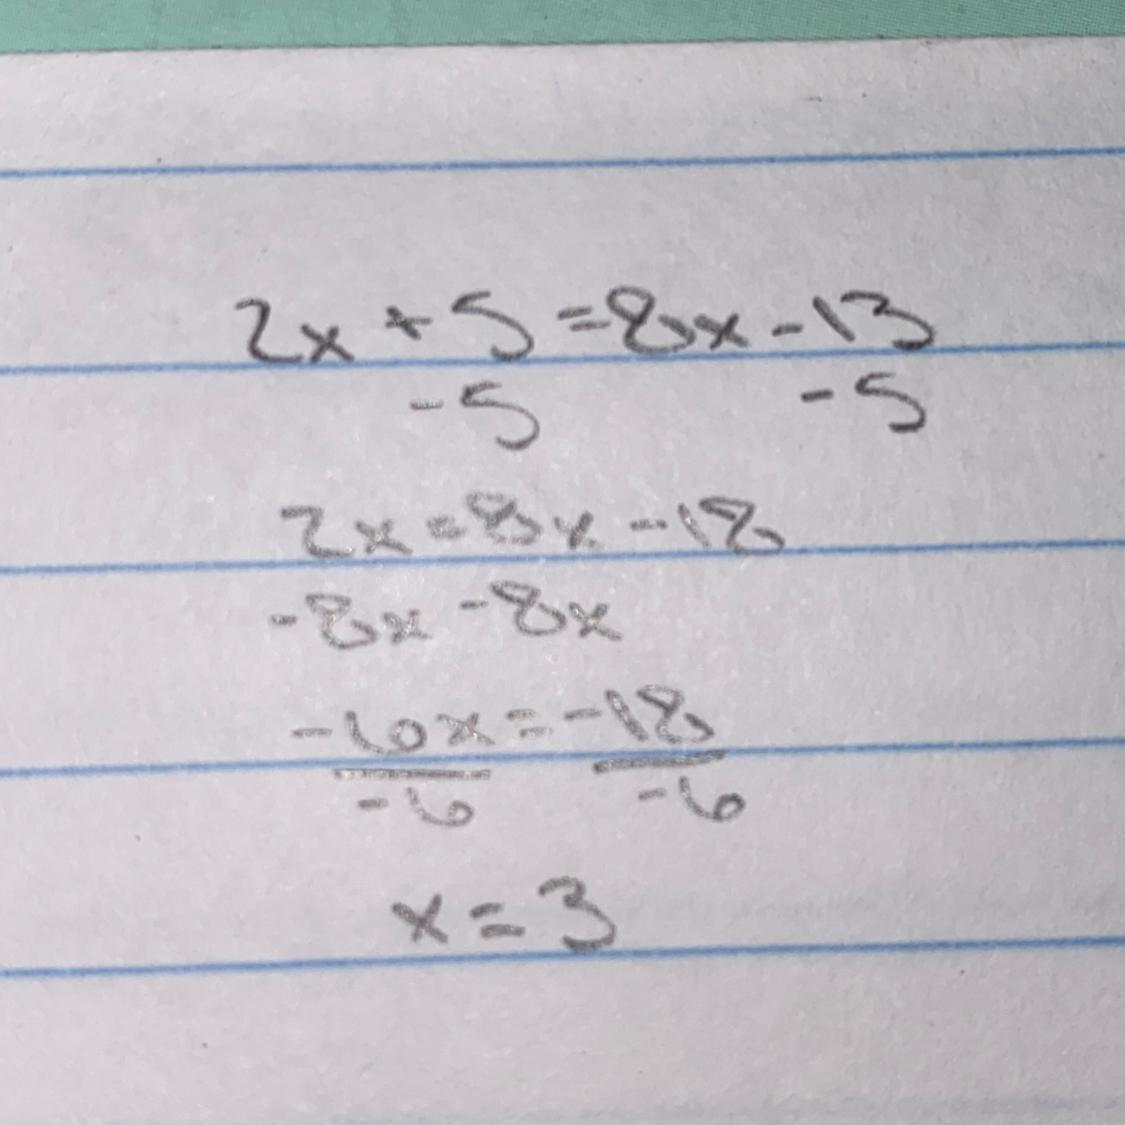 2x + 5 = 8x - 13
-5 -5
2x = 8x - 18
-8x -8x
-6x = -18
-6 -6
x = 3